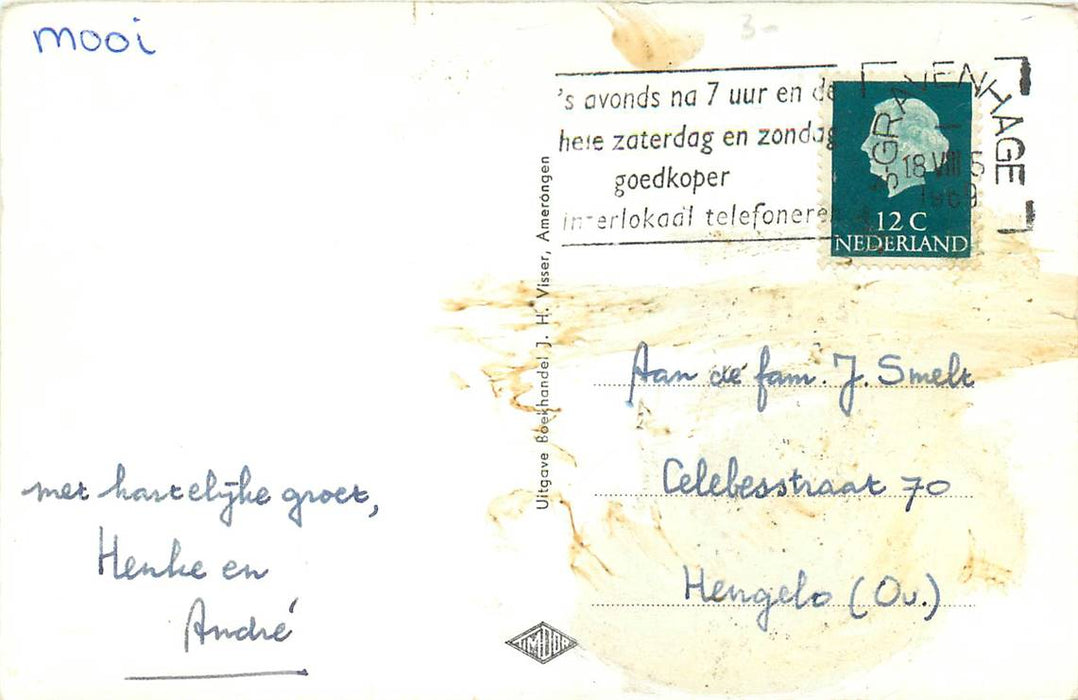 mooi
3-
's avonds na 7 uur en de
hele zaterdag en zondag
goedkoper
interlokaal telefoneren
's-GRAVENHAGE
18 VIII
1969
12 C
NEDERLAND
Uitgave Boekhandel J. H. Visser, Amerongen
Aan de fam. J. Smelt
Celebesstraat 70
Hengelo (Ov.)
met hartelijke groet,
Henke en
André
TIMOOR